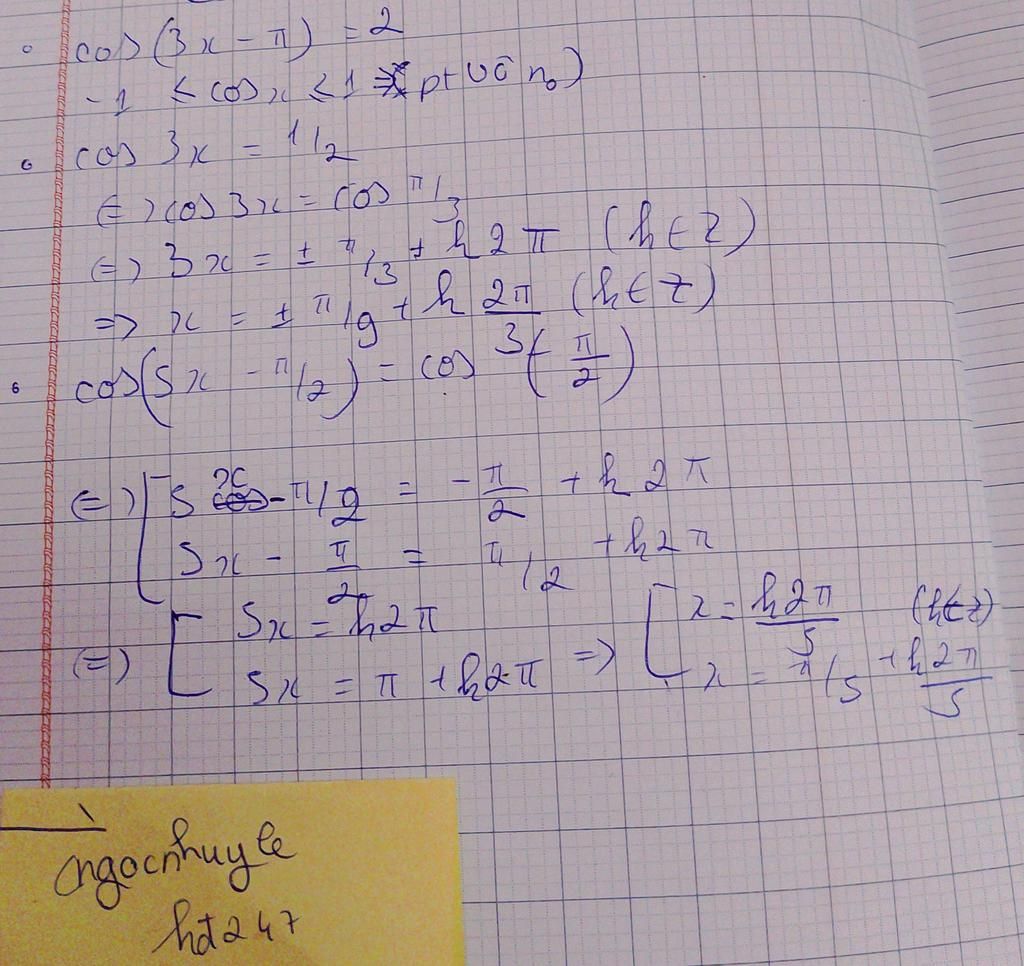 cos(3x - π) = 2
-1 ≤ cosx ≤ 1 => pt vô no)
cos 3x = 1/2
<=> cos 3x = cos π/3
<=> 3x = ± π/3 + k2π (k∈Z)
=> x = ± π/9 + k2π/3 (k∈Z)
cos(5x - π/2) = cos (-π/2)
<=> [ 5x - π/2 = -π/2 + k2π
5x - π/2 = π/2 + k2π
<=> [ 5x = k2π => [ x = k2π/5 (k∈Z)
5x = π + k2π x = π/5 + k2π/5
ngocnhuyle
hd247